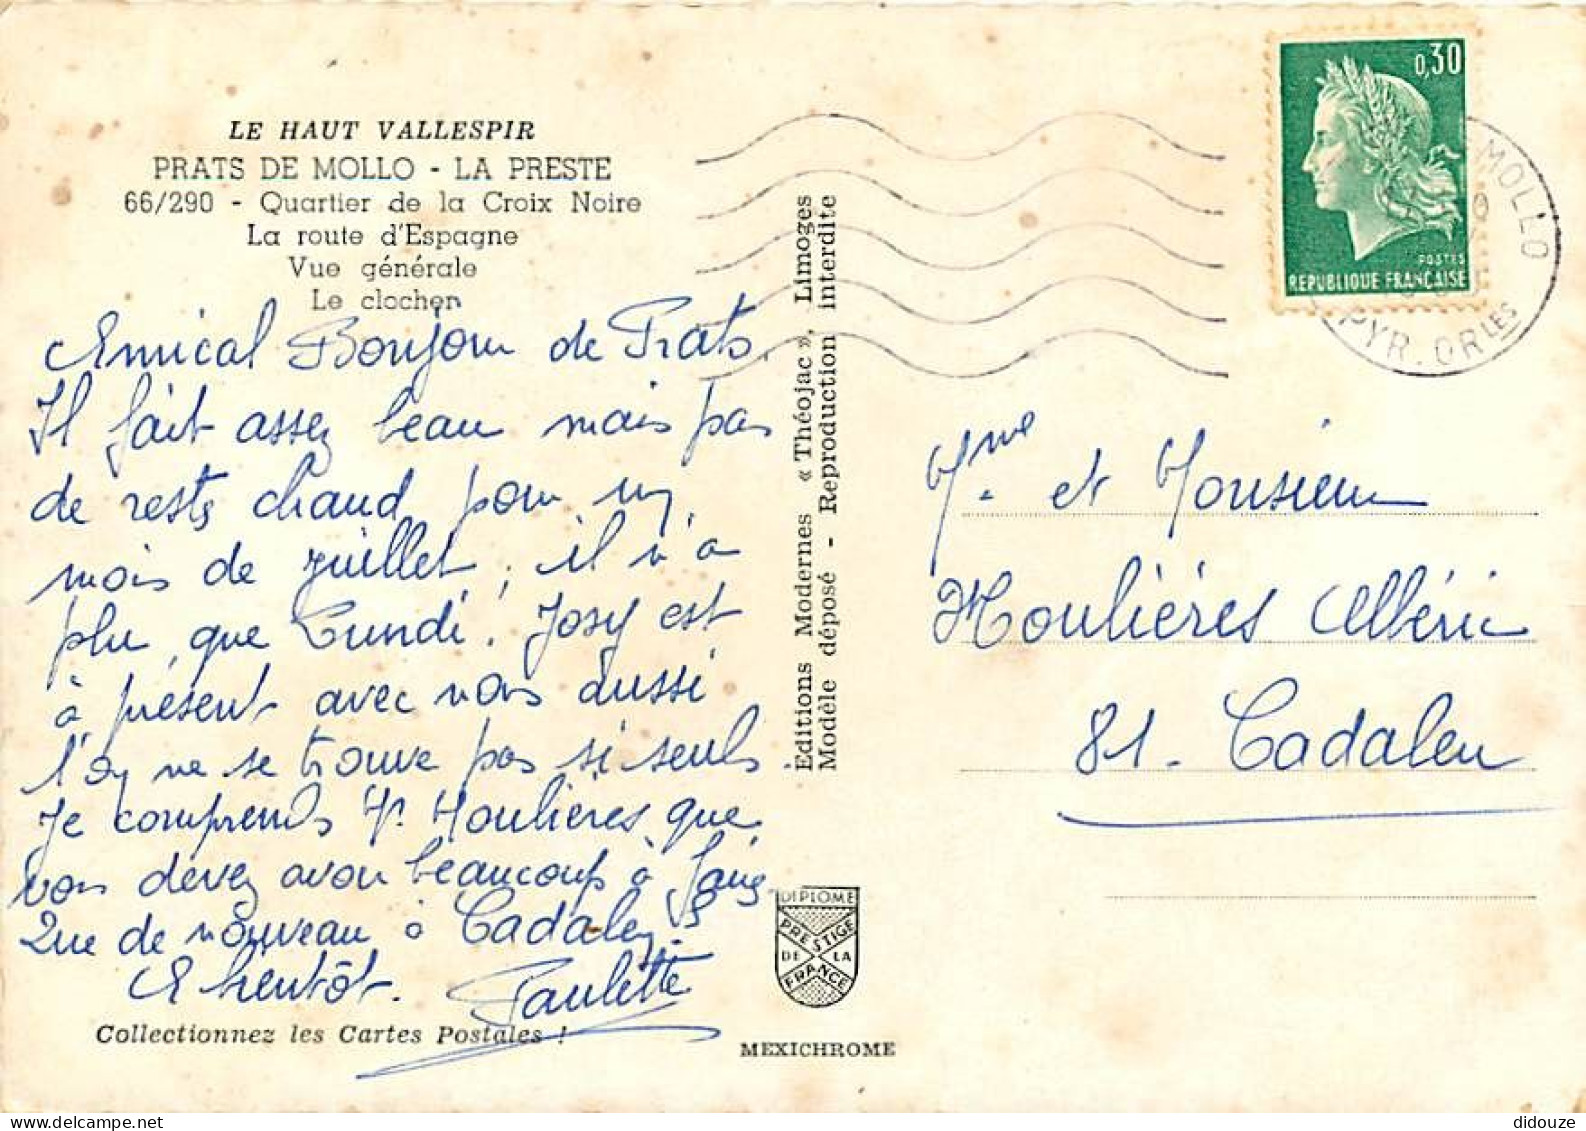 LE HAUT VALLESPIR
PRATS DE MOLLO - LA PRESTE
66/290 - Quartier de la Croix Noire
La route d'Espagne
Vue générale
Le clocher
Amical Bonjour de Prats.
Il fait assez beau mais pas
de reste chaud pour un
mois de juillet, il n'a
plu que Lundi. Josy est
à présent avec nous aussi
l'on ne se trouve pas si seuls.
Je comprends Mr Moulières que
vous devez avoir beaucoup à faire
Que de nouveau à Cadalen ?
A bientôt. Paulette
Collectionnez les Cartes Postales !
Editions Modernes « Théojac », Limoges
Modèle déposé - Reproduction interdite
DIPLOME
PRESTIGE
DE LA
FRANCE
MEXICHROME
0,30
POSTES
REPUBLIQUE FRANÇAISE
MOLLO
PYR. ORLES
Mme et Monsieur
Moulières Albéric
81. Cadalen
didouze